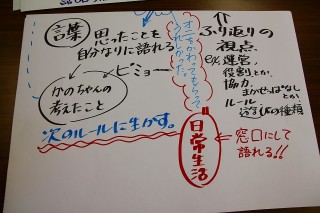 言葉
思ったことを
自分なりに語れる
ビミョー
かのちゃんの
考えたこと
次のルールに生かす。
オニでかわってもらって
うれしかった。
日常生活
ふり返りの
視点
ex. 運営、
役割とか、
協力、
まかせっぱなし
とか
ルール
の種類
窓口にして
語れる!!